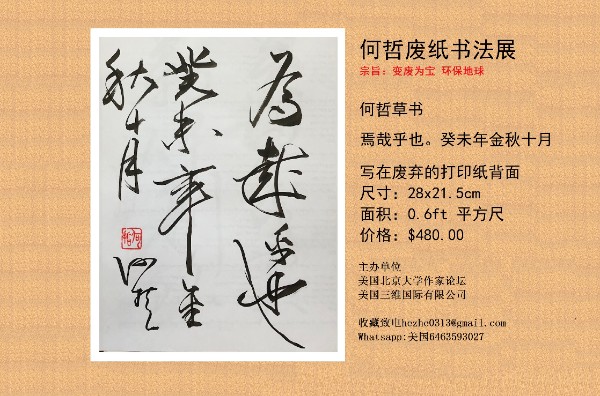 焉哉乎也
癸未年金
秋十月
何哲
何哲
何哲废纸书法展
宗旨：变废为宝 环保地球
何哲草书
焉哉乎也。癸未年金秋十月
写在废弃的打印纸背面
尺寸：28x21.5cm
面积：0.6ft 平方尺
价格：$480.00
主办单位
美国北京大学作家论坛
美国三维国际有限公司
收藏致电hezhe0313@gmail.com
Whatsapp:美国6463593027